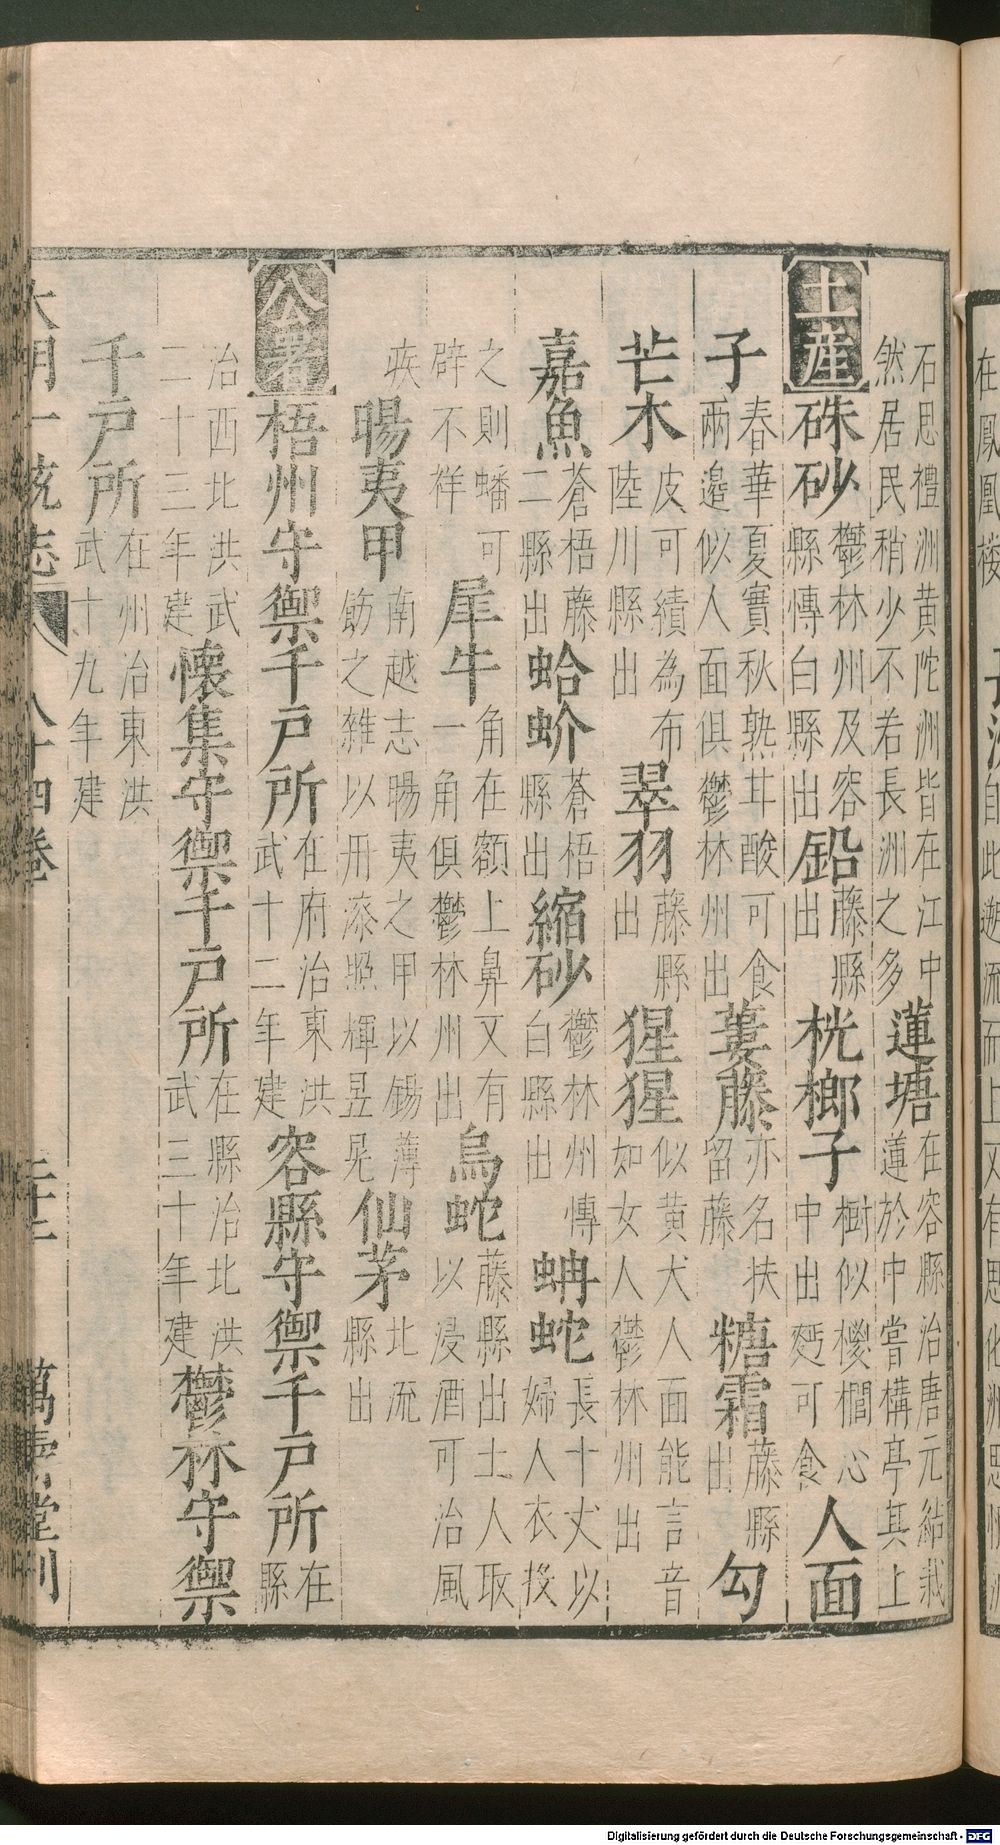 石思禮洲黃陀洲皆在江中
然居民稍少不若長洲之多
蓮塘
在容縣治唐元結栽
蓮於中嘗構亭其上
土產
硃砂
鬱林州及容
縣傳白縣出
鉛
藤縣
出
桄榔子
樹似椶櫚心
中出麫可食
人面
子
春華夏實秋熟甘酸可食
兩邊似人面俱鬱林州出
蔞藤
亦名扶
留藤
糖霜
藤縣
出
勾
芒木
皮可績為布
陸川縣出
翠羽
藤縣
出
猩猩
似黃犬人面能言音
如女人鬱林州出
嘉魚
蒼梧藤
二縣出
蛤蚧
蒼梧
縣出
縮砂
鬱林州傳
白縣出
蚺蛇
長十丈以
婦人衣投
之則蟠可
辟不祥
犀牛
角在額上鼻又有
一角俱鬱林州出
烏蛇
藤縣出土人取
以浸酒可治風
疾
暘夷甲
南越志暘夷之甲以錫薄
飾之雜以丹漆照輝昱晃
仙茅
北流
縣出
公署
梧州守禦千戶所
在府治東洪
武十二年建
容縣守禦千戶所
在
縣
治西北洪武
二十三年建
懷集守禦千戶所
在縣治北洪
武三十年建
鬱林守禦
千戶所
在州治東洪
武十九年建
大明一統志
八十四卷
萬壽堂刊
在鳳凰樓
自此遡流而上又有思化洲思
Digitalisierung gefördert durch die Deutsche Forschungsgemeinschaft - DFG